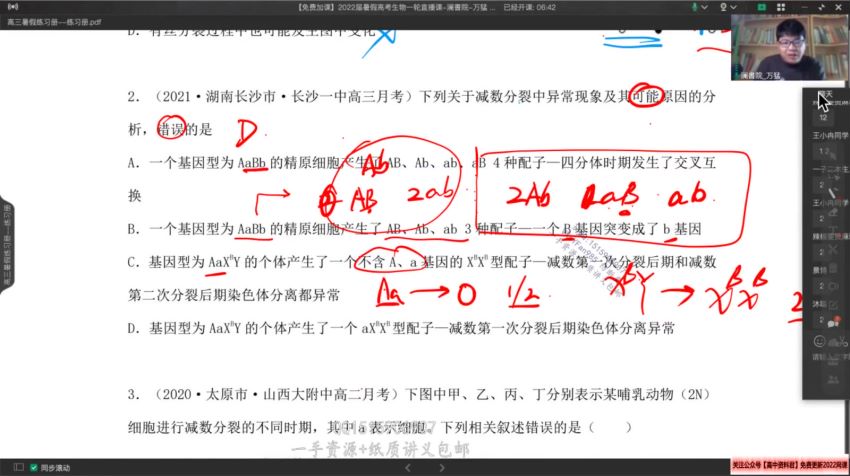 【免费加课】2022届暑假高考生物一轮直播课-澜書院_万猛 ... 已经开课: 06:42
高三暑假练习册——练习册.pdf
D. 有丝分裂过程中也可能发生图中变化
澜書院_万猛
聊天
2. (2021·湖南长沙市·长沙一中高三月考) 下列关于减数分裂中异常现象及其可能原因的分
析, 错误的是 D
A. 一个基因型为 AaBb 的精原细胞产生了 AB、Ab、ab、aB 4 种配子—四分体时期发生了交叉互
换
Ab
AB 2ab
2Ab aB ab
B. 一个基因型为 AaBb 的精原细胞产生了 AB、Ab、ab 3 种配子—一个 B 基因突变成了 b 基因
C. 基因型为 AaXᴮY 的个体产生了一个不含 A、a 基因的 XᴮXᴮ 型配子—减数第一次分裂后期和减数
第二次分裂后期染色体分离都异常
Aa → 0 1/2 XᴮY → XᴮXᴮ 2
D. 基因型为 AaXᴮY 的个体产生了一个 aXᴮXᴮ 型配子—减数第一次分裂后期染色体分离异常
3. (2020·太原市·山西大附中高二月考) 下图中甲、乙、丙、丁分别表示某哺乳动物 (2N)
细胞进行减数分裂的不同时期, 其中 a 表示细胞。下列相关叙述错误的是 ( )
一手资源+纸质讲义包邮
王小冉同学
王小冉同学
景倩
沐瑶
高三暑假练习册——练习册
同步滚动
关注公众号【高中资料君】免费更新2022网课